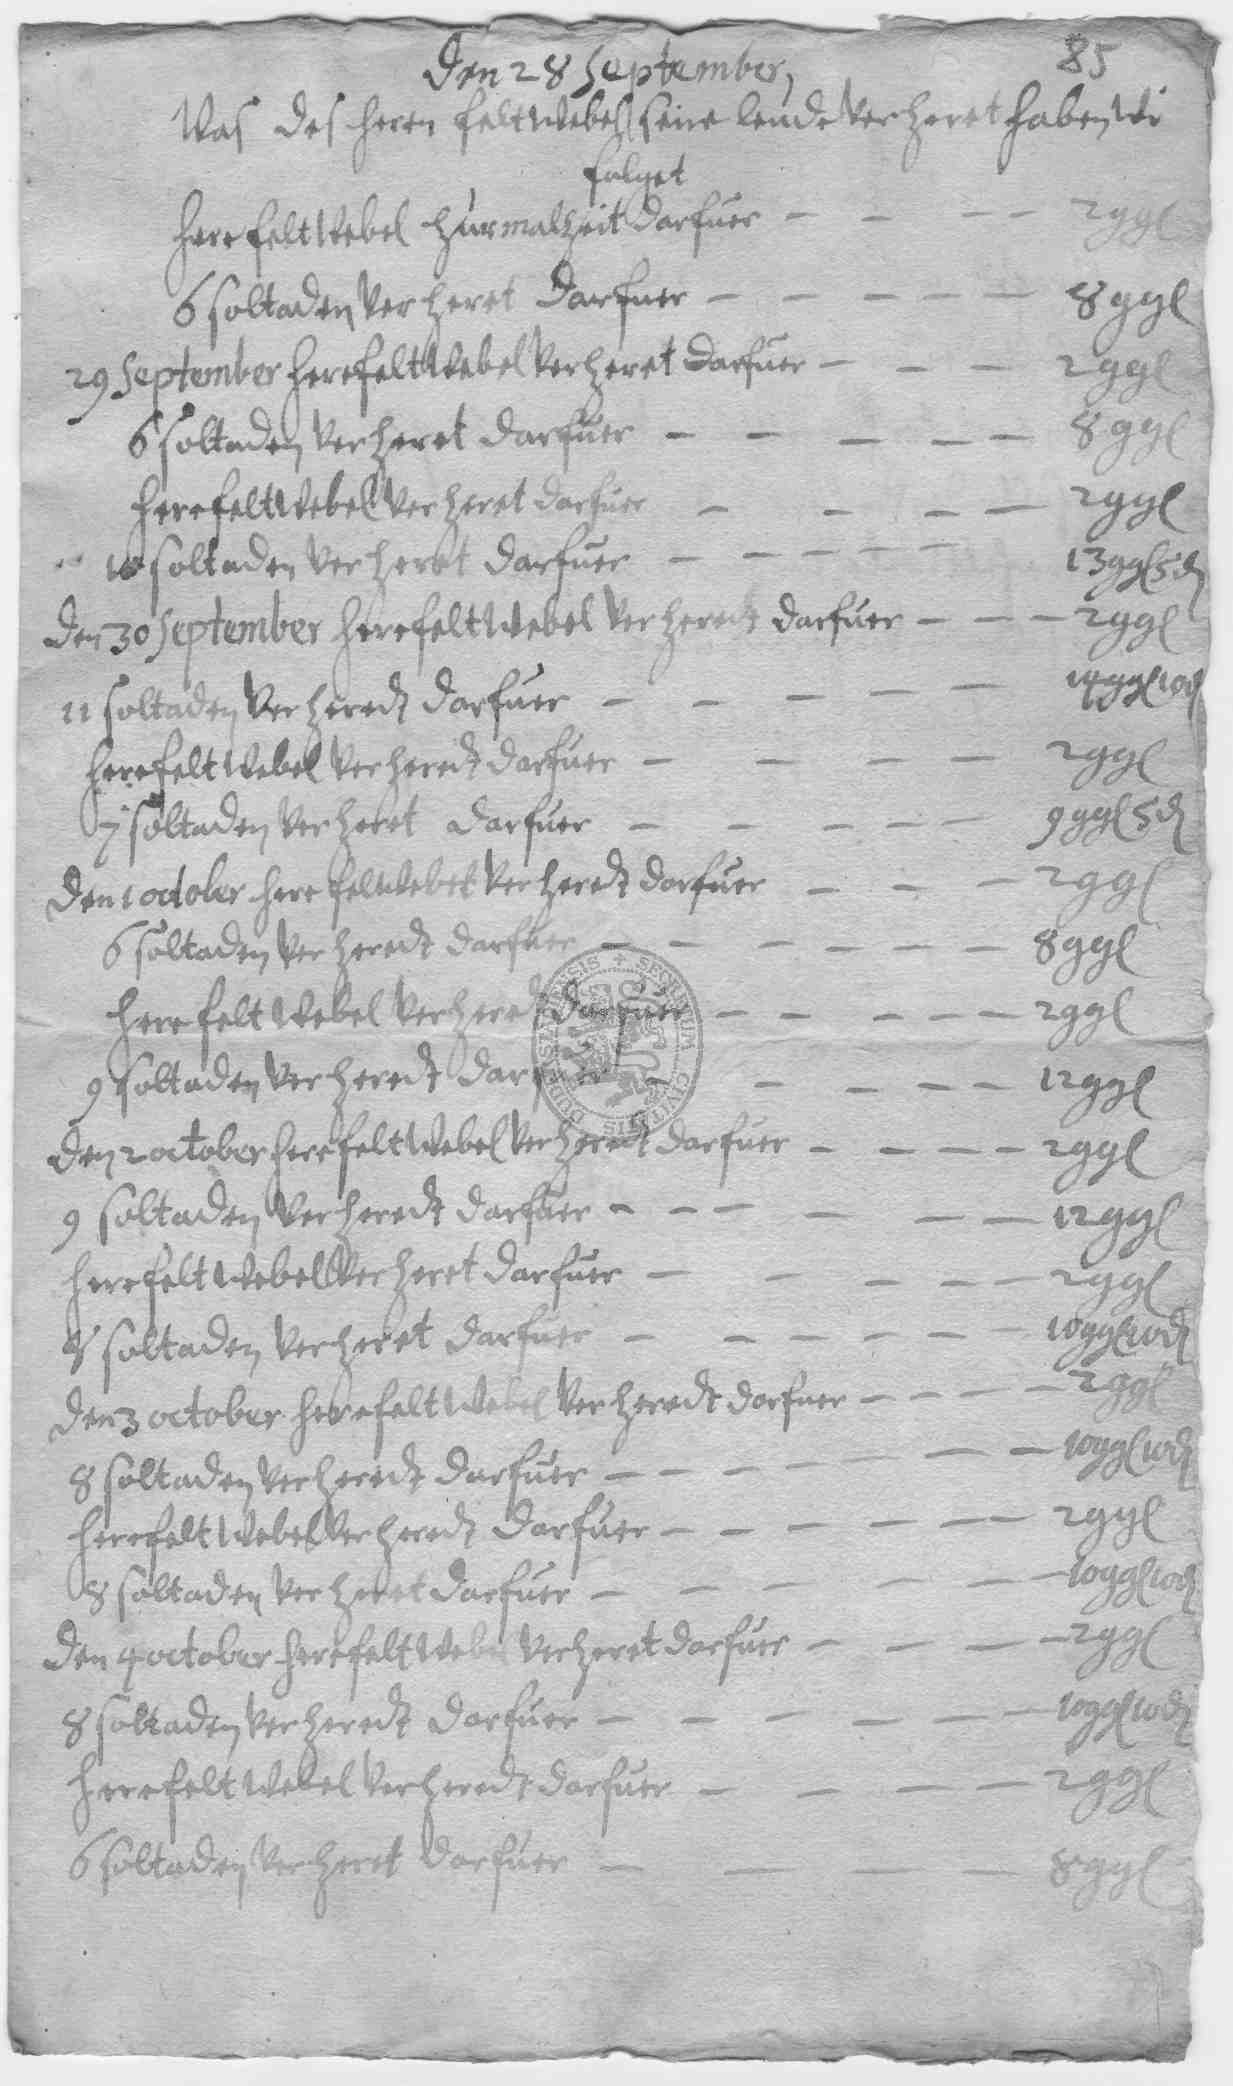 85
Den 28 September,
Was des heren feltwebels seine leude verzeret haben wi
folget
here feltwebel zur malzeit darfuer — — — — 2 ggl
6 soltaden verzeret darfuer — — — — — 8 ggl
29 September here feltwebel verzeret darfuer — — — 2 ggl
6 soltaden verzeret darfuer — — — — — 8 ggl
here feltwebel verzeret darfuer — — — — 2 ggl
10 soltaden verzeret darfuer — — — — — — 13 ggl 5 d
Den 30 September here feltwebel verzeredt darfuer — — — 2 ggl
11 soltaden verzeredt darfuer — — — — — 14 ggl 10 d
here feltwebel verzeredt darfuer — — — — 2 ggl
7 soltaden verzeret darfuer — — — — — 9 ggl 5 d
Den 1 october here feltwebel verzeredt darfuer — — — 2 ggl
6 soltaden verzeredt darfuer — — — — — — 8 ggl
here felt webel verzeredt darfuer — — — — — 2 ggl
9 soltaden verzeredt darfuer — — — — — 12 ggl
Den 2 october here feltwebel verzeredt darfuer — — — — 2 ggl
9 soltaden verzeredt darfuer — — — — — — 12 ggl
here feltwebel verzeret darfuer — — — — — 2 ggl
8 soltaden verzeret darfuer — — — — — — 10 ggl 10 d
Den 3 october here feltwebel verzeredt darfuer — — — — — 2 ggl
8 soltaden verzeredt darfuer — — — — — — — 10 ggl 10 d
here feltwebel verzeredt darfuer — — — — — — 2 ggl
8 soltaden verzeret darfuer — — — — — — 10 ggl 10 d
Den 4 october here feltwebel verzeret darfuer — — — — 2 ggl
8 soltaden verzeredt darfuer — — — — — — 10 ggl 10 d
here feltwebel verzeredt darfuer — — — — 2 ggl
6 soltaden verzeret darfuer — — — — 8 ggl